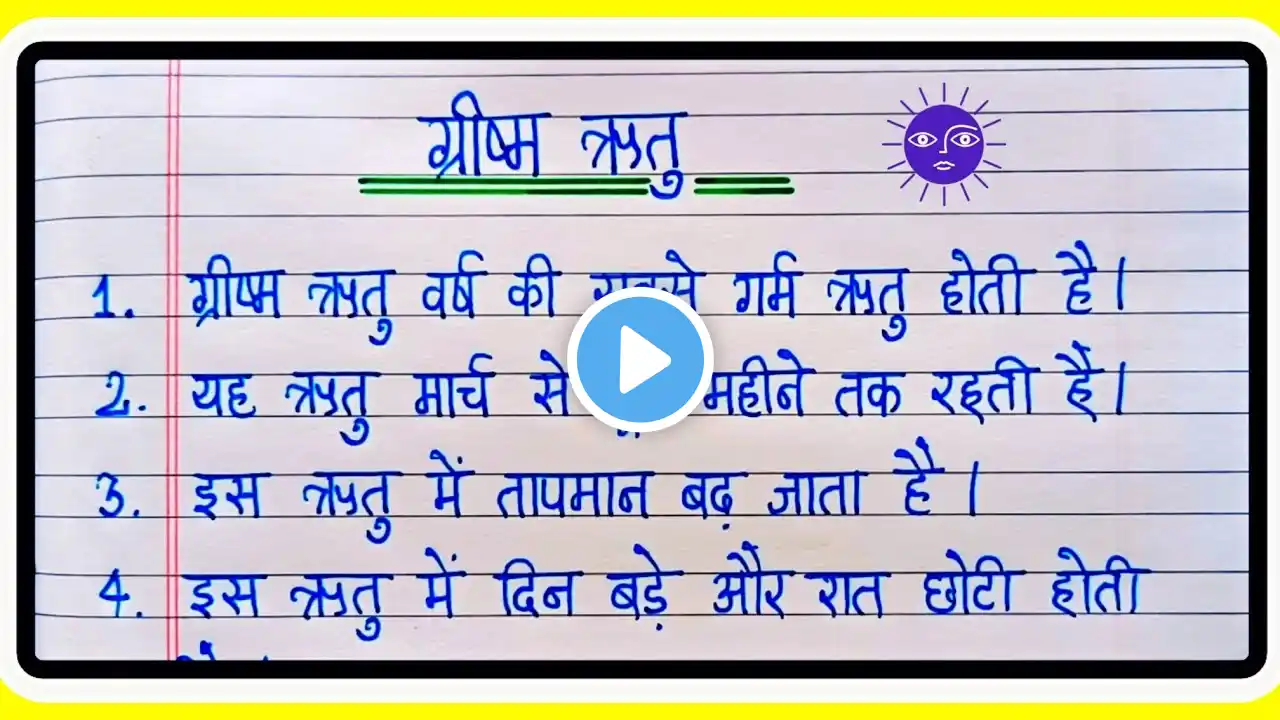 ग्रीष्म ऋतु
1. ग्रीष्म ऋतु वर्ष की सबसे गर्म ऋतु होती है।
2. यह ऋतु मार्च से महीने तक रहती है।
3. इस ऋतु में तापमान बढ़ जाता है।
4. इस ऋतु में दिन बड़े और रात छोटी होती